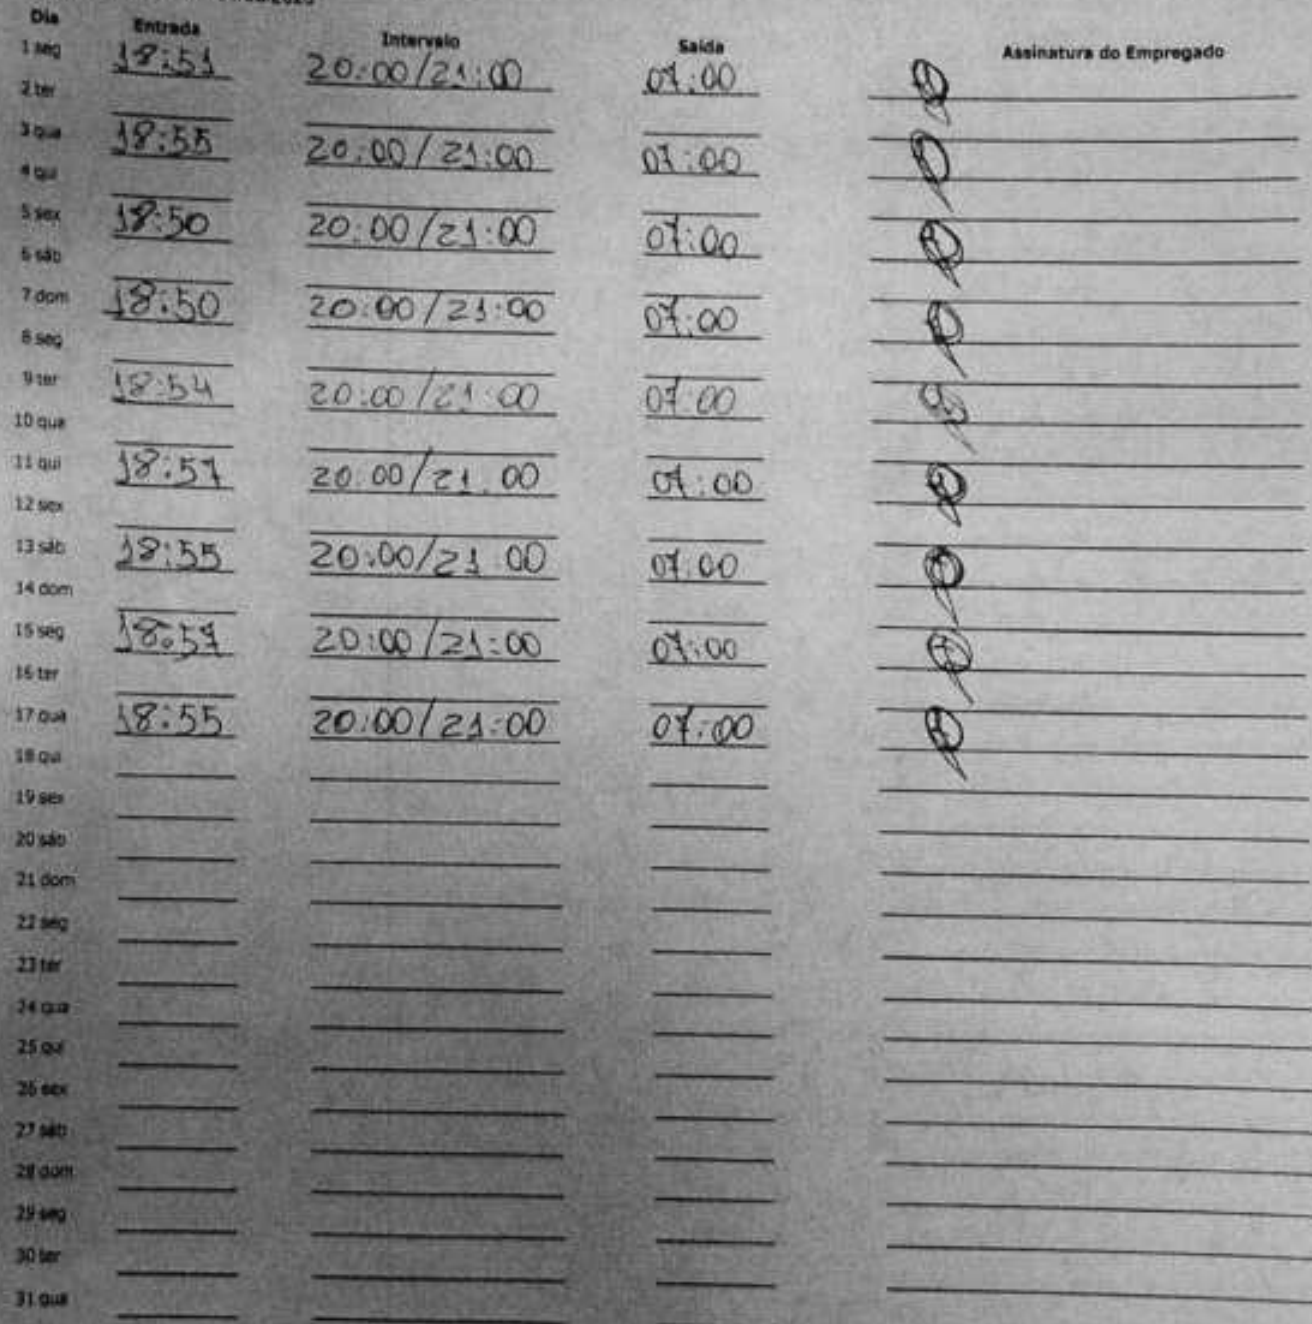 Dia Entrada Intervalo Saída Assinatura do Empregado
1 seg 18:51 20:00/21:00 07:00
2 ter
3 qua 18:55 20:00/21:00 07:00
4 qui
5 sex 18:50 20:00/21:00 07:00
6 sáb
7 dom 18:50 20:00/21:00 07:00
8 seg
9 ter 18:54 20:00/21:00 07:00
10 qua
11 qui 18:57 20:00/21:00 07:00
12 sex
13 sáb 18:55 20:00/21:00 07:00
14 dom
15 seg 18:57 20:00/21:00 07:00
16 ter
17 qua 18:55 20:00/21:00 07:00
18 qui
19 sex
20 sáb
21 dom
22 seg
23 ter
24 qua
25 qui
26 sex
27 sáb
28 dom
29 seg
30 ter
31 qua